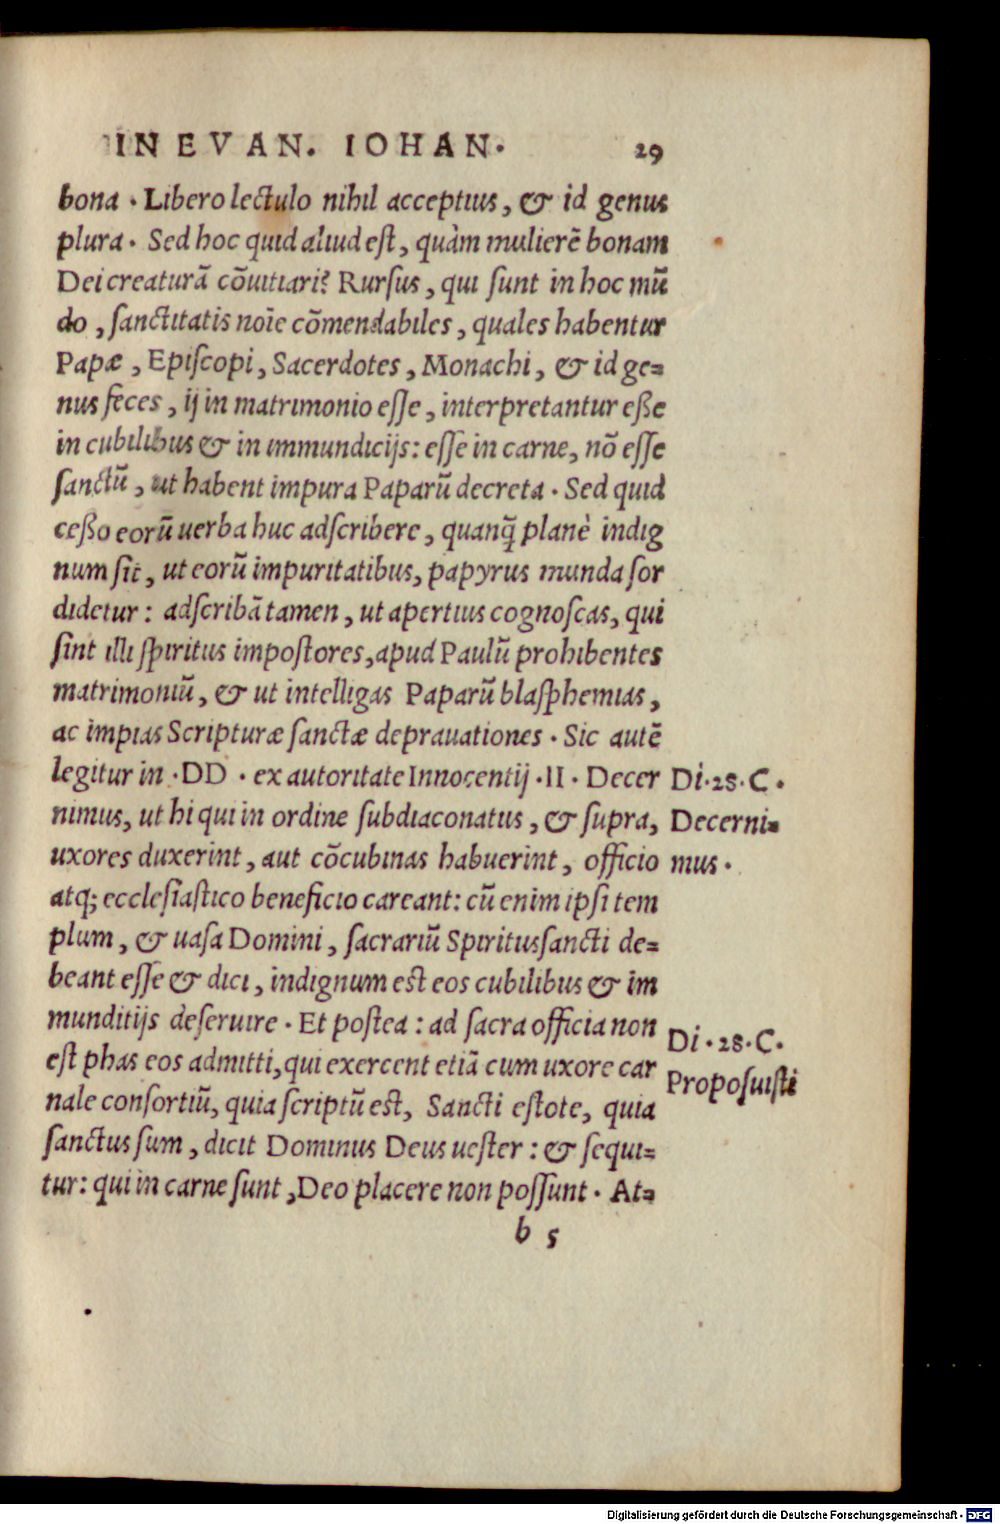 IN EVAN. IOHAN. 29
bona . Libero lectulo nihil acceptius, & id genus
plura. Sed hoc quid aliud est, quàm mulierē bonam
Dei creaturā cōuitiari? Rursus, qui sunt in hoc mū
do, sanctitatis noīe cōmendabiles, quales habentur
Papæ, Episcopi, Sacerdotes, Monachi, & id ge=
nus feces, ij in matrimonio esse, interpretantur eße
in cubilibus & in immundicijs: esse in carne, nō esse
sanctū, ut habent impura Paparū decreta. Sed quid
ceßo eorū uerba huc adscribere, quanq̃ planè indig
num sit, ut eorū impuritatibus, papyrus munda sor
didetur: adscribā tamen, ut apertius cognoscas, qui
sint illi spiritus impostores, apud Paulū prohibentes
matrimoniū, & ut intelligas Paparū blasphemias,
ac impias Scripturæ sanctæ deprauationes. Sic autē
legitur in .DD. ex autoritate Innocentij .II. Decer
Di.28.C.
nimus, ut hi qui in ordine subdiaconatus, & supra,
Decerni=
uxores duxerint, aut cōcubinas habuerint, officio
mus.
atq; ecclesiastico beneficio careant: cū enim ipsi tem
plum, & uasa Domini, sacrariū Spiritussancti de=
beant esse & dici, indignum est eos cubilibus & im
munditijs deseruire. Et postea: ad sacra officia non
Di.28.C.
est phas eos admitti, qui exercent etiā cum uxore car
Proposuisti
nale consortiū, quia scriptū est, Sancti estote, quia
sanctus sum, dicit Dominus Deus uester: & sequi=
tur: qui in carne sunt, Deo placere non possunt. At=
b 5
Digitalisierung gefördert durch die Deutsche Forschungsgemeinschaft - DFG